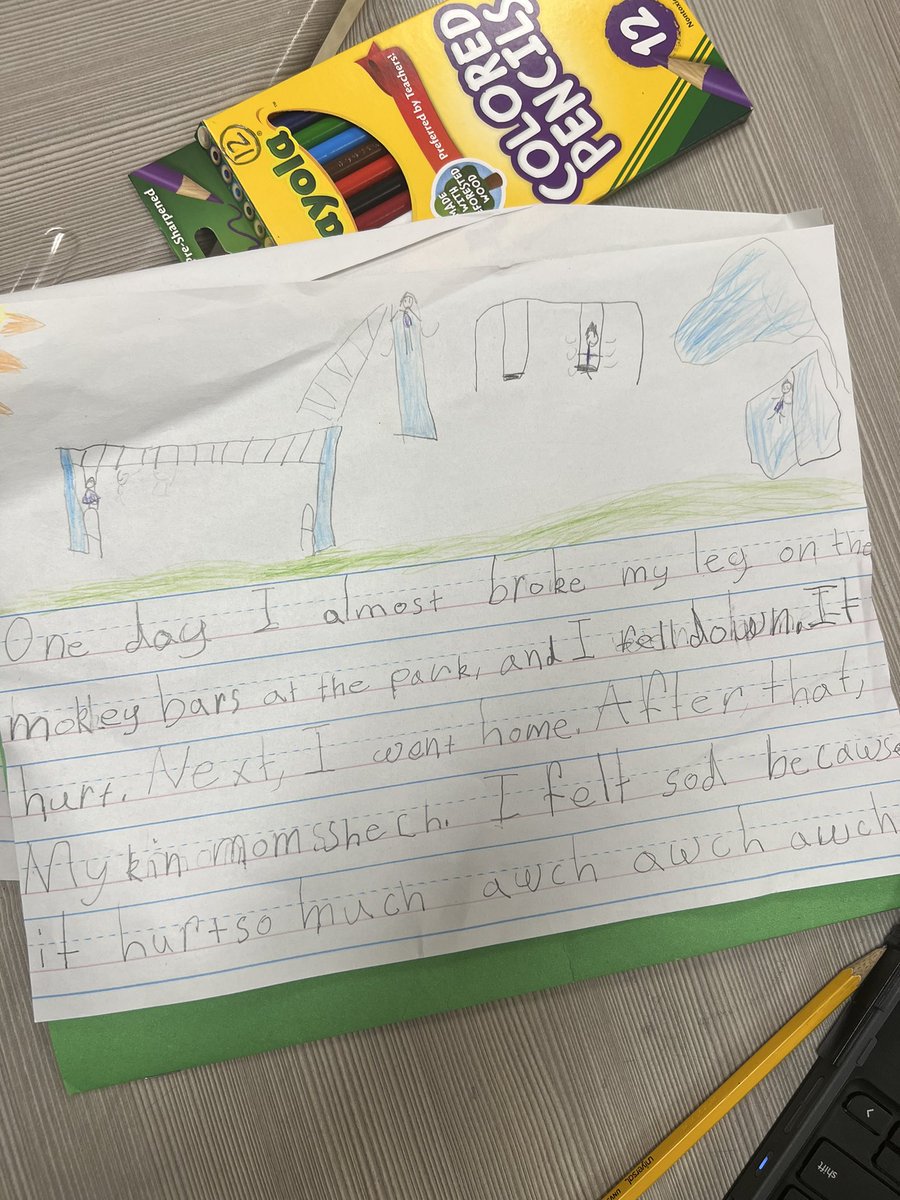 Nontoxic
12
COLORED
PENCILS
Preferred by Teachers!
12
ayola
MADE
WITH
REFORESTED
WOOD
Pre-Sharpened
One day I almost broke my leg on the
mokey bars at the park, and I fell down. It
hurt. Next, I went home. After, that,
My kin mom
I felt sad because
it hurt so much awch awch awch
universal
UNV
shift